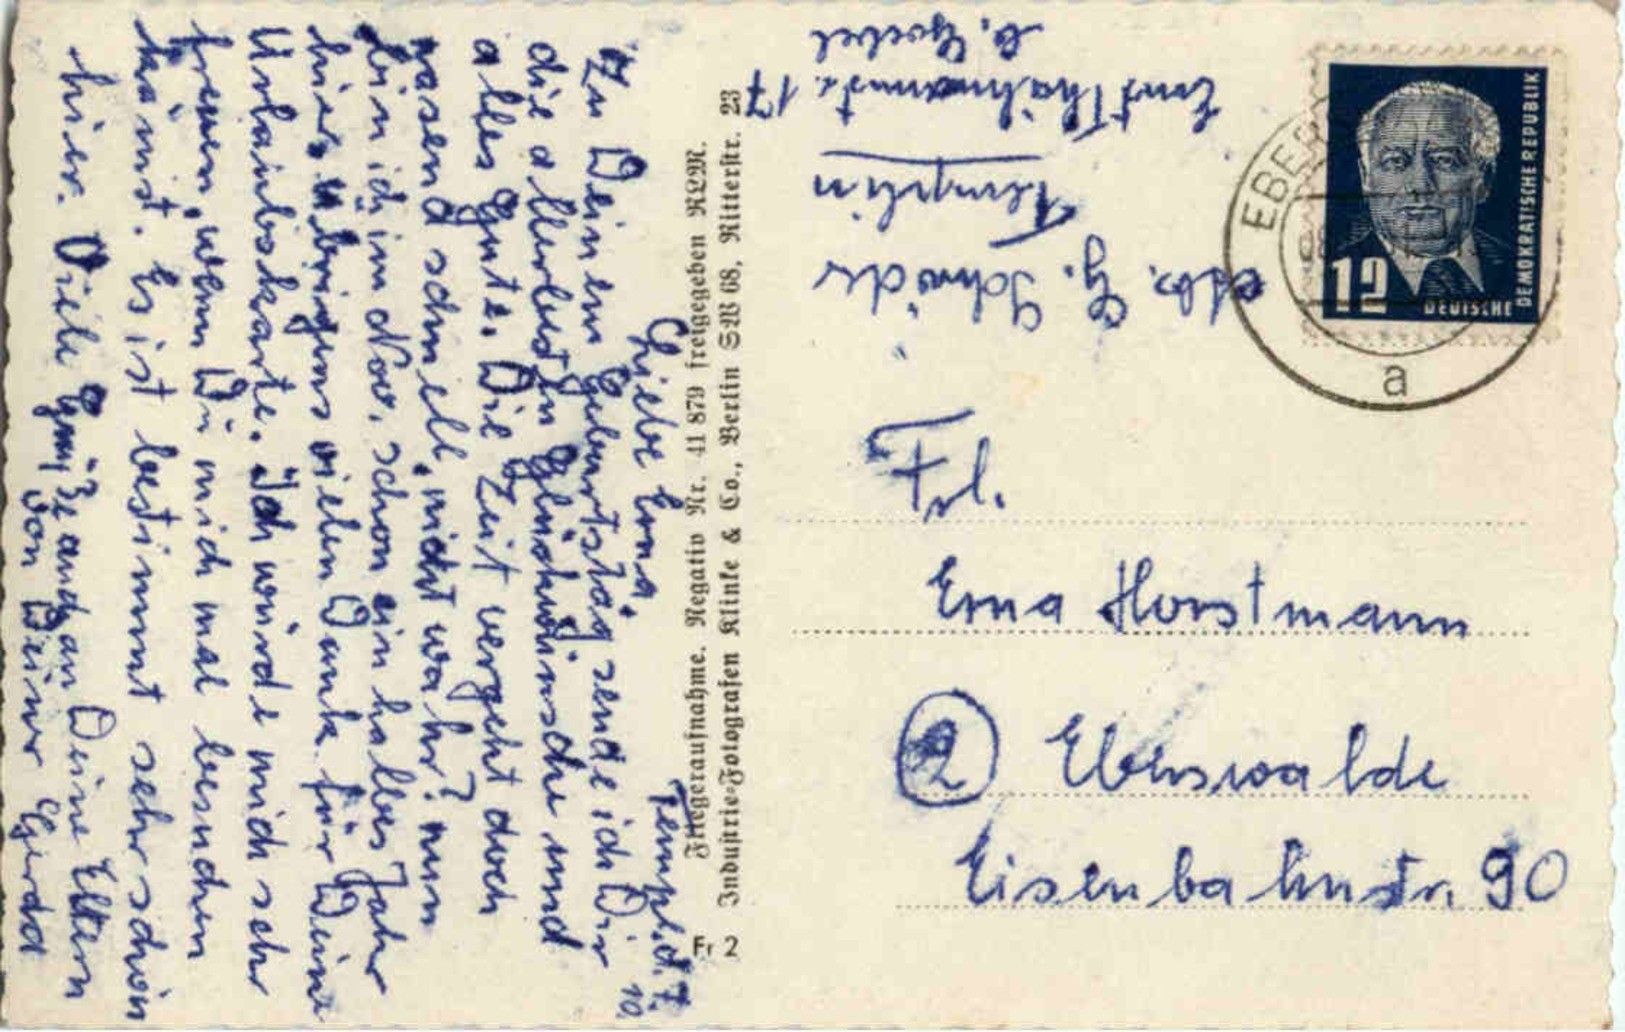 Templ. d. 7.
10.
Liebe Erna.
Zu Deinem Geburtstag sende ich Dir
die allerbesten Glückwünsche und
alles Gute. Die Zeit vergeht doch
rasend schnell, nicht wahr? nun
bin ich im Nov. schon ein halbes Jahr
hier. Übrigens vielen Dank für Deine
Urlaubskarte. Ich würde mich sehr
freuen, wenn Du mich mal besuchen
kämst. Es ist bestimmt sehr schön
hier. Viele Grüße auch an Deine Eltern
von Deiner Gerda
Fliegeraufnahme. Negativ Nr. 41 879 freigegeben RLM.
Industrie-Fotografen Klinke & Co., Berlin SW 68, Ritterstr. 23
Fr 2
Abs. G. Schröder
Templin
Ernst Thälmannstr. 17
b. Goebel
EBERS
a
12
DEUTSCHE
DEMOKRATISCHE REPUBLIK
Frl.
Erna Horstmann
2 Eberswalde
Eisenbahnstr. 90